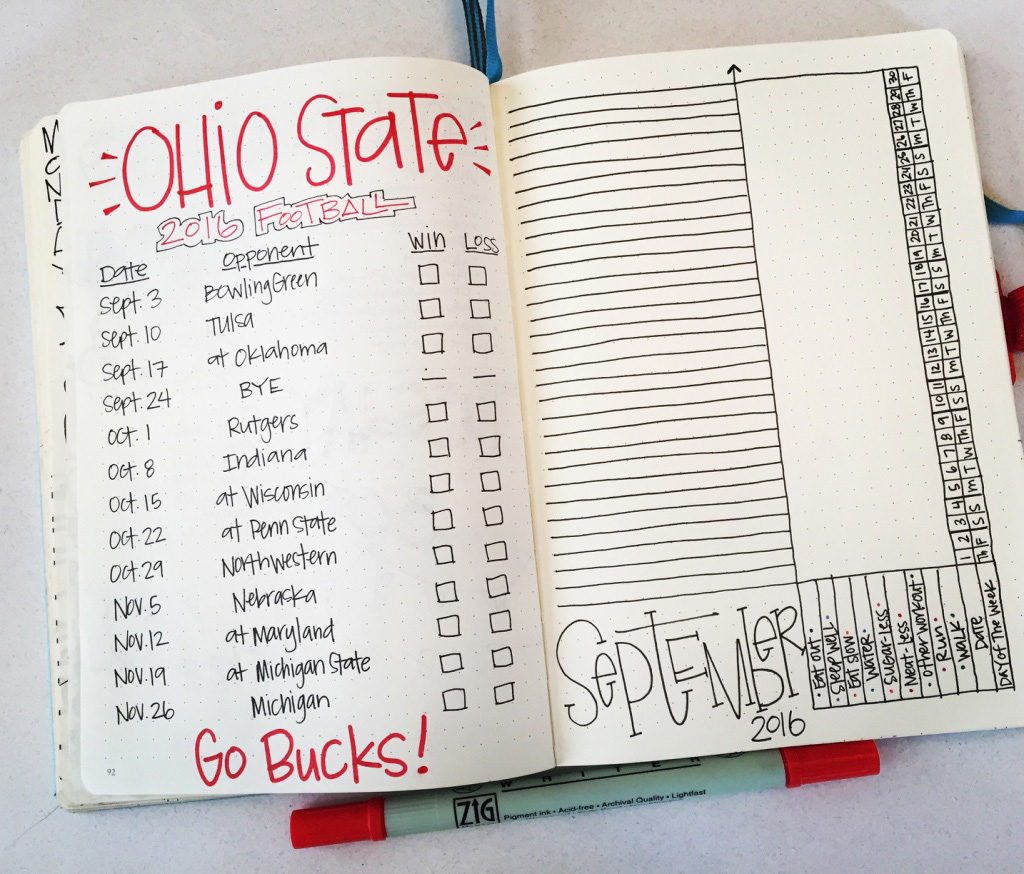 OHIO STATE
2016 FOOTBALL
Date Opponent Win Loss
Sept. 3 Bowling Green
Sept. 10 Tulsa
Sept. 17 at Oklahoma
Sept. 24 BYE
Oct. 1 Rutgers
Oct. 8 Indiana
Oct. 15 at Wisconsin
Oct. 22 at Penn State
Oct. 29 Northwestern
Nov. 5 Nebraska
Nov. 12 at Maryland
Nov. 19 at Michigan State
Nov. 26 Michigan
Go Bucks!
92
SEPTEMBER
2016
Eat out
Sleep well
Eat slow
Water
Sugar-less
Meat-less
Other workout
Run
Walk
Date
Day of the Week
1 2 3 4 5 6 7 8 9 10 11 12 13 14 15 16 17 18 19 20 21 22 23 24 25 26 27 28 29 30
Th F S S M T W Th F S S M T W Th F S S M T W Th F S S M T W Th F
WRITER
ZIG
Pigment Ink • Acid-free • Archival Quality • Lightfast